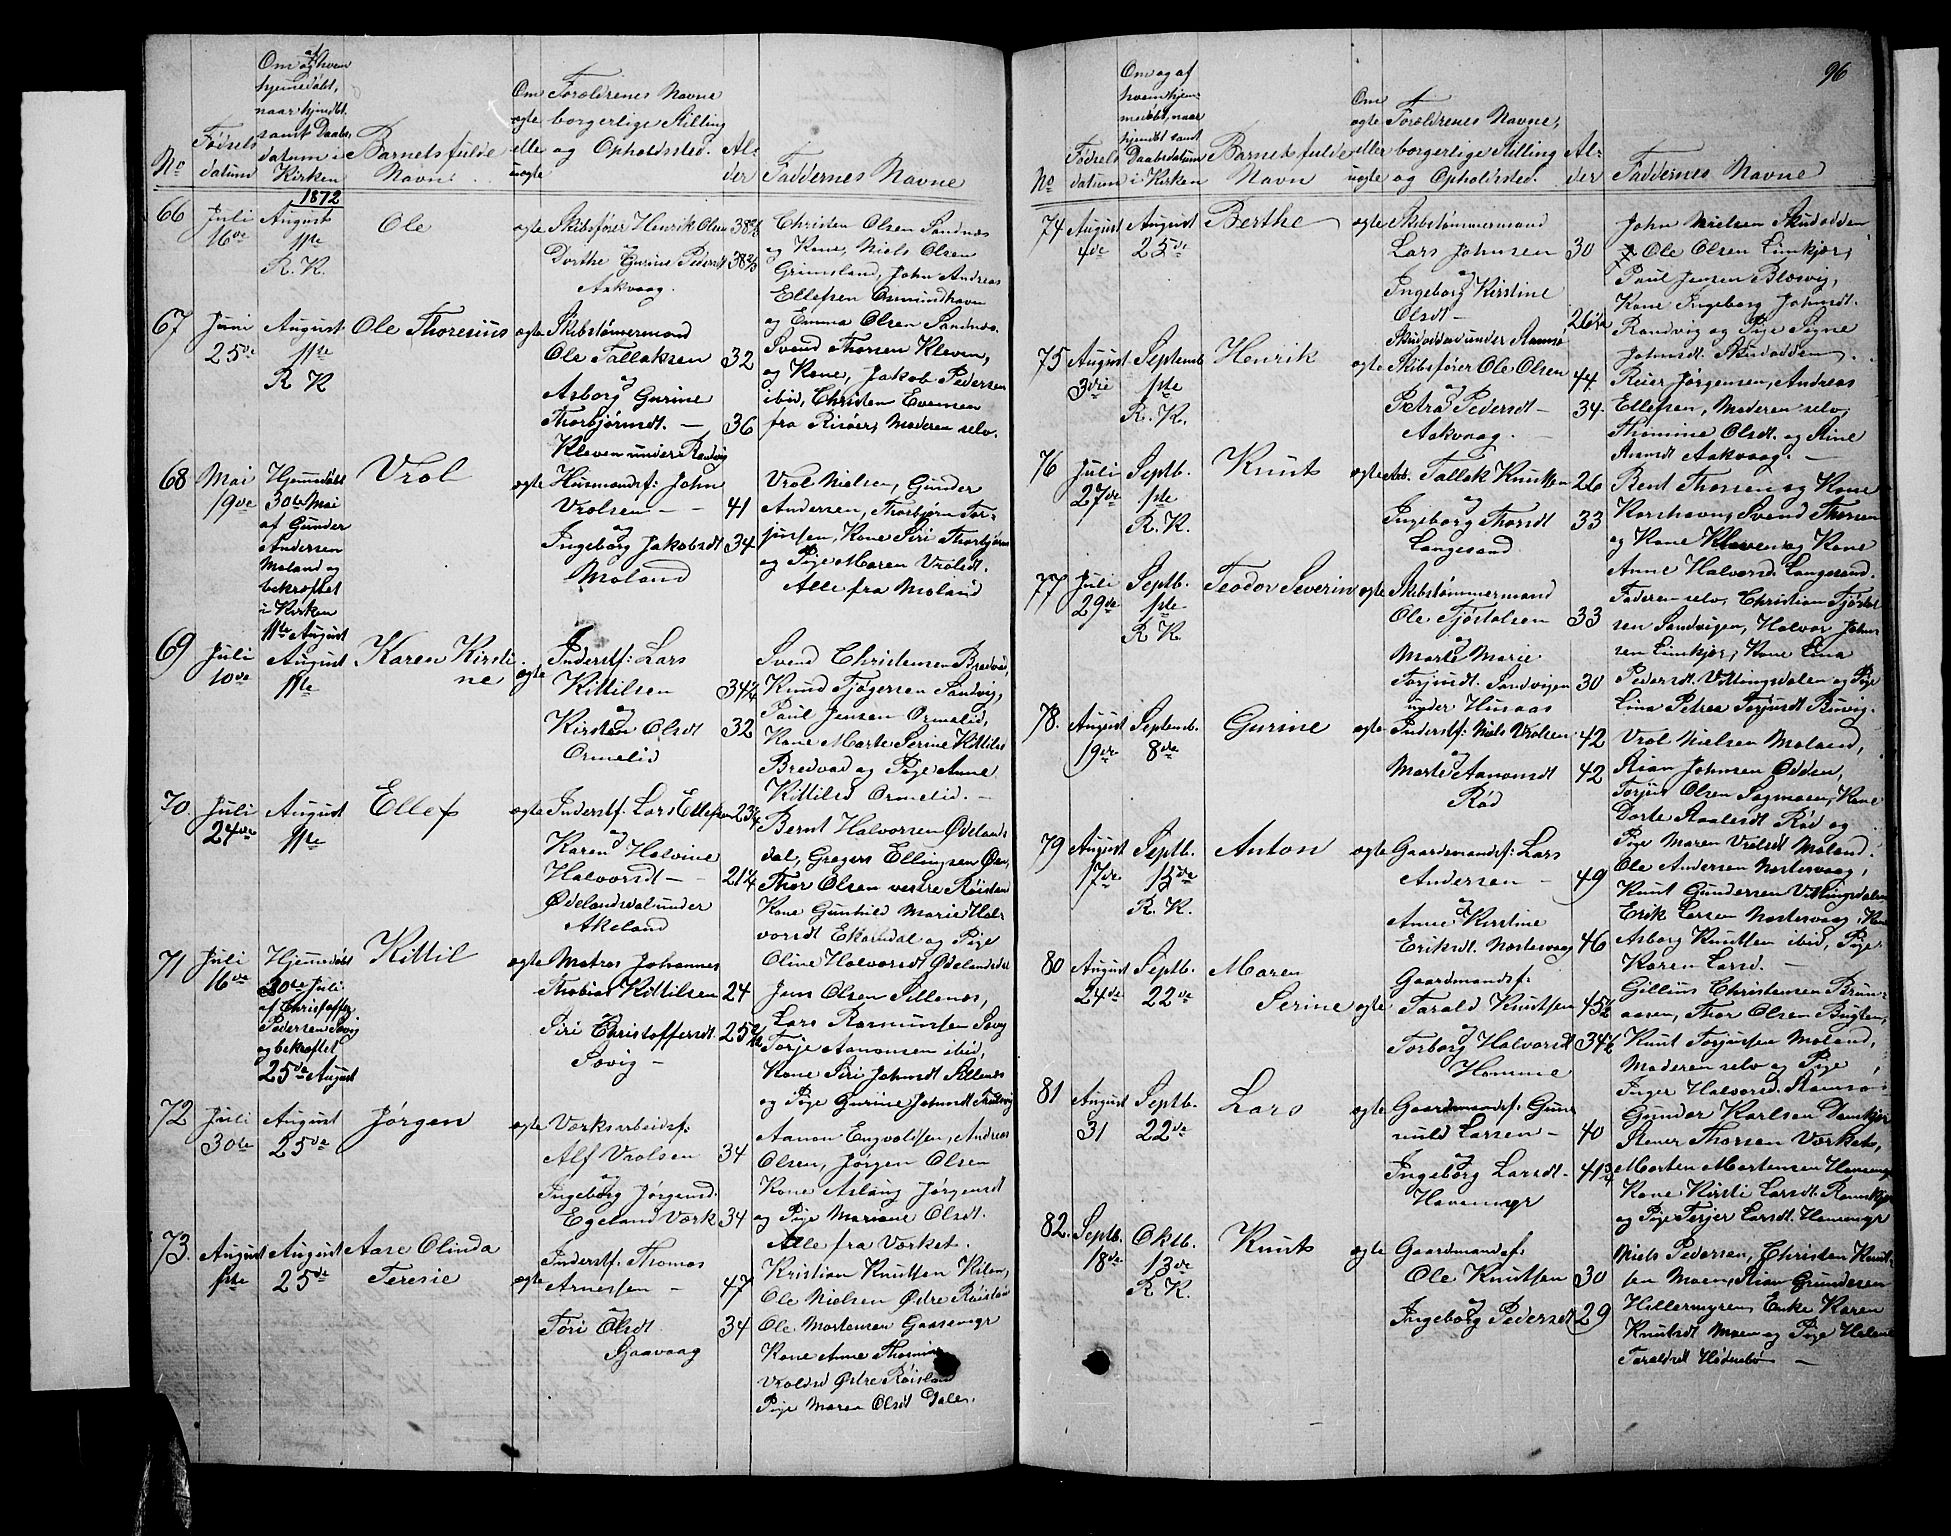 96
No
Fødsels
datum
Om og af hvem
hjemmedøbt,
naar hjemdbt.
samt Daabs-
datum i
Kirken
Barnets fulde
Navn.
Om
ægte
eller
uægte
Forældrenes Navne
borgerlige Stilling
og Opholdssted.
Al-
der
Faddernes Navne
1872
66
Juli
16de
August
11te
R. K.
Ole
ægte
Skibsfører Henrik Olsen
og
Dorthe Gurine Pedersdt
Askvaag.
Christen Olsen Sandnæs
og Kone, Niels Olsen
Grimsland, John Andreas
Ellefsen Osmundhavn
og Emma Olsen Sandnæs.
67
Juni
25de
August
11te
R K
Ole Thoresius
ægte
Skibstømermand
Ole Tallaksen 32
og
Asborg Gurine
Thorbjørnsdt. — 36
Kleven under Randvig
Svend Thorsen Kleven,
og Kone, Jakob Pedersen
ibid, Christen Evensen
fra Risøer, Moderen selv.
68
Mai
19de
Hjemmedøbt
30te Mai
af Gunder
Andersen
Moland og
bekræftet
i Kirken
11te August
Vrol
ægte
Husmandsf: John
Vrolsen — — 41
og
Ingeborg Jakobsdt 34
Moland
Vrol Nielsen, Gunder
Andersen, Thorbjørn Tor-
jussen, Kone Siri Thorbjørns
og Pige Maren Vrolsdt.
Alle fra Moland
69
Juli
10de
August
11te
Karen Kirsti-
ne
ægte
Inderstf: Lars
Kittilsen 34½
og
Kirsten Olsdt 32
Ormelid
Svend Christensen Bredvad,
Knud Tjøgersen Sandvig,
Paul Jensen Ormelid,
Kone Marte Serine Kittilsd
Bredvad og Pige Anne
Kittilsd Ormelid. —
70.
Juli
24de
August
11te
Ellef
ægte
Inderstf: Lars Ellefsen 23¾
og
Karen Halvine
Halvorsdt — 21¼
Ødelandsdal under
Akeland
Bernt Halvorsen Ødelands
dal, Gregers Ellingsen Øen,
Thor Olsen vestre Røisland
Kone Gunhild Marie Hal-
vorsdt Ekorndal og Pige
Oline Halvorsdt Ødelandsdal
71
Juli
16de
Hjemmedøbt
20de Juli
af Christoffer
Pedersen Savig
og bekræftet
25de August
Kittil
ægte
Matros Johannes
Thobias Kittilsen 24
og
Siri Christoffersdt.
Savig —
Jens Olsen Sillenæs,
Lars Rasmussen Savig
Torje Aanonsen ibid,
Kone Siri Johnsdt Sillenæs
og Pige Gurine Johnsdt
72
Juli
30te
August
25de
Jørgen
ægte
Værksarbeidsf:
Alf Vrolsen 34
og
Ingeborg Jørgensd.
Egeland Værk 34
Aanon Engvoldsen, Andreas
Olsen, Jørgen Olsen
Kone Aslaug Jørgensdt
og Pige Mariane Olsdt.
Alle fra Værket.
73.
August
1ste
August
25de
Aase Olinda
Teresie
ægte
Inderstf: Thomas
Arnessen — 47
og
Tøri Olsdt. 34
Gaasvaag
Kristian Knutsen Kilen,
Ole Nielsen Østre Røisland
Ole Mortensen Gaasemyr
Kone Anne Thomine
Vrolsd Østre Røisland
Pige Maren Olsdt Dale.
No
Fødsels
datum
Om og af
hvem hjem-
medøbt, naar
hjemdbt samt
Daabsdatum
i Kirken
Barnets fulde
Navn
Om
ægte
eller
uægte
Forældrenes Navne,
borgerlige Stilling
og Opholdssted.
Al-
der
Faddernes Navne
74
August
4de
August
25de
Berthe
ægte
Skibstømmermand
Lars Johnsen 30
og
Ingeborg Kirstine
Olsdt —
Skudodden under Stamsø
John Nielsen Skudodden
Ole Olsen Limkjær,
Paul Jensen Blosvig,
Kone Ingeborg Johnsdt.
Randvig og Pige Signe
Johnsdt. Skudodden.
75
August
3die
Septemb
1ste
R. K.
Henrik
ægte
Skibsfører Ole Olsen 44.
og
Petra Pedersdt — 34.
Askvaag. —
Reier Jørgensen, Andreas
Ellefsen, Moderen selv,
Thomine Olsdt. og Stine
Askvaag. —
76
Juli
27de
Septb.
1ste
R. K.
Knut
ægte
Arb. Tallak Knutsen 26
og
Ingeborg Thorsdt 33
Langesand
Bent Thorsen og Kone
Korshavn, Svend Thorsen
og Kone Kleven og Kone
Anne Halvorsd. Langesand.
77
Juli
29de
Septb.
1ste
R. K.
Teodor Severin
ægte
Skibstømmermand
Ole Tjøstolsen 33
og
Marte Marie
Torjusdt. Sandvigen 30
under Husaas
Faderen selv, Christian Tjøstol
sen Sandvigen, Halvor John
sen Limkjær, Kone Lina
Pedersdt. Vittingsdalen og Pige
Lina Petrea Torjusdt Buvig.
78.
August
19de
Septemb.
8de
Gurine
ægte
Inderstf: Niels Vrolsen 42
og
Marte Aanonsdt 42
Rød
Vrol Nielsen Moland,
Stian Johnsen Odden,
Torjus Olsen Sagmoen, Kone
Dorte Staalesdt Rød og
Pige Maren Vrolsdt Moland.
79
August
17de
Septb.
15de
R. K.
Anton
ægte
Gaardmandsf: Lars
Andersen — 49
og
Anne Kirstine
Eriksdt. Nortesvaag 46
Ole Andersen Nortesvaag,
Knut Gundersen Vittingsdalen
Erik Larsen Nortesvaag, Kone
Asborg Knutsen ibid, Pige
Karen Larsd. —
80
August
24de
Septb.
22de
Maren
Serine
ægte
Gaardmandsf:
Tarald Knudtsen 45½
og
Torborg Halvorsdt
Homme
Gillius Christensen Brun-
aasen, Thor Olsen Bugten,
Knut Torjussen Moland,
Moderen selv og Pige
Inger Halvorsd. Stamsø
81
August
31
Septb.
22de
Lars
ægte
Gaardmandsf: Gun
nuld Larsen — 40
og
Ingeborg Larsdt —
Havemyr
Gunder Karlsen
Stener Thorsen Værket,
Morten Mortensen Havemyr
Kone Kirsti Larsdt.
og Pige Terjer Larsdt. Havemyr
82.
Septb.
18de
Oktb.
13de
R. K.
Knut
ægte
Gaardmandsf:
Ole Knutsen 30
og
Ingeborg Pedersdt 29
Niels Pedersen, Christen Knut-
sen Moen, Stian Gundersen
Hillermyren, Enke Karen
Knutsdt Moen og Pige Helene
Taraldsdt Hødnebø —